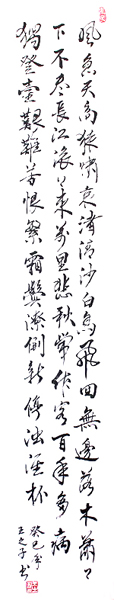 風急天高猿嘯哀渚清沙白鳥飛回無邊落木蕭〻
下不盡長江滾〻來萬里悲秋常作客百年多病
獨登臺艱難苦恨繁霜鬢潦倒新停濁酒杯
癸巳年